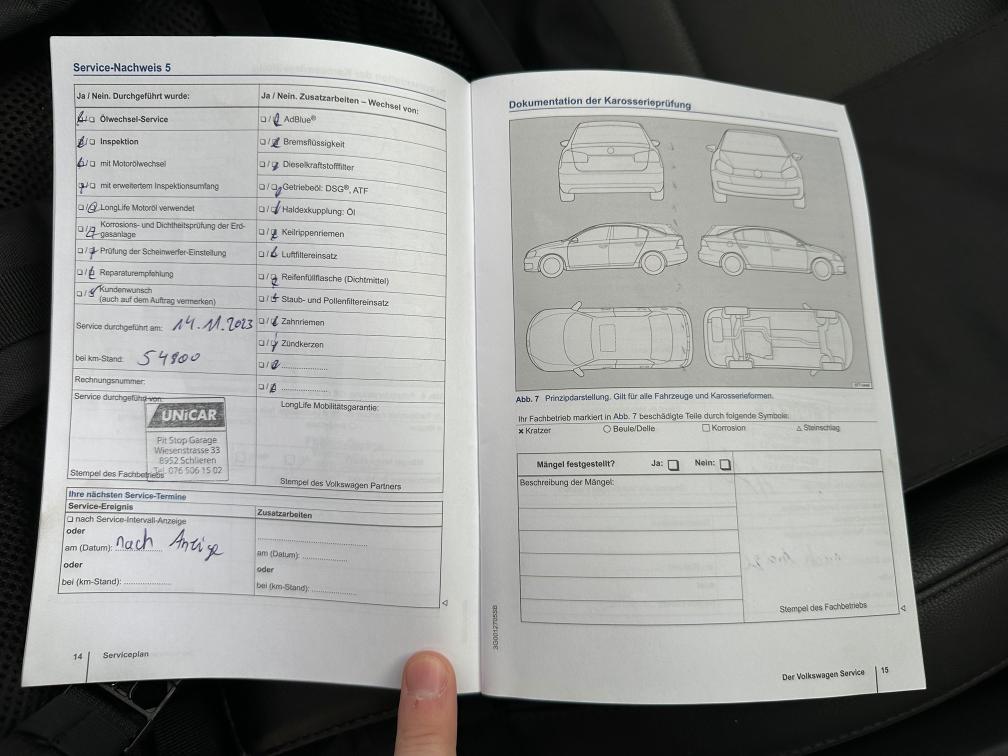 Service-Nachweis 5
Ja / Nein. Durchgeführt wurde:
☐ Ölwechsel-Service
☐ Inspektion
☐ mit Motorölwechsel
☐ mit erweitertem Inspektionsumfang
☐ / LongLife Motoröl verwendet
☐ / Korrosions- und Dichtheitsprüfung der Erd-
gasanlage
☐ / Prüfung der Scheinwerfer-Einstellung
☐ / Reparaturempfehlung
☐ / Kundenwunsch
(auch auf dem Auftrag vermerken)
Service durchgeführt am: 14.11.2023
bei km-Stand: 54900
Rechnungsnummer:
Service durchgeführt von:
UNiCAR
Pit Stop Garage
Wiesenstrasse 33
8952 Schlieren
Tel. 076 506 15 02
Stempel des Fachbetriebs
Ja / Nein. Zusatzarbeiten – Wechsel von:
☐ / AdBlue®
☐ / Bremsflüssigkeit
☐ / Dieselkraftstofffilter
☐ / Getriebeöl: DSG®, ATF
☐ / Haldexkupplung: Öl
☐ / Keilrippenriemen
☐ / Luftfiltereinsatz
☐ / Reifenfüllflasche (Dichtmittel)
☐ / Staub- und Pollenfiltereinsatz
☐ / Zahnriemen
☐ / Zündkerzen
☐ / ....................
☐ / ....................
LongLife Mobilitätsgarantie:
Stempel des Volkswagen Partners
Ihre nächsten Service-Termine
Service-Ereignis
☐ nach Service-Intervall-Anzeige
oder
am (Datum): nach Anzige
oder
bei (km-Stand): ....................
Zusatzarbeiten
am (Datum): ....................
oder
bei (km-Stand): ....................
14 Serviceplan
Dokumentation der Karosserieprüfung
Abb. 7 Prinzipdarstellung. Gilt für alle Fahrzeuge und Karosserieformen.
Ihr Fachbetrieb markiert in Abb. 7 beschädigte Teile durch folgende Symbole:
× Kratzer ○ Beule/Delle ☐ Korrosion △ Steinschlag
Mängel festgestellt? Ja: ☐ Nein: ☐
Beschreibung der Mängel:
Stempel des Fachbetriebs
3G0012705SB
Der Volkswagen Service 15